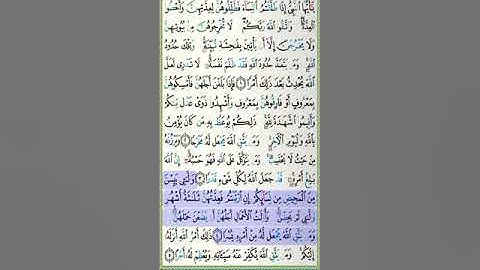 يَٰٓأَيُّهَا ٱلنَّبِيُّ إِذَا طَلَّقْتُمُ ٱلنِّسَآءَ فَطَلِّقُوهُنَّ لِعِدَّتِهِنَّ وَأَحْصُوا۟
ٱلْعِدَّةَ وَٱتَّقُوا۟ ٱللَّهَ رَبَّكُمْ لَا تُخْرِجُوهُنَّ مِنۢ بُيُوتِهِنَّ
وَلَا يَخْرُجْنَ إِلَّآ أَن يَأْتِينَ بِفَٰحِشَةٍ مُّبَيِّنَةٍ وَتِلْكَ حُدُودُ
ٱللَّهِ وَمَن يَتَعَدَّ حُدُودَ ٱللَّهِ فَقَدْ ظَلَمَ نَفْسَهُۥ لَا تَدْرِى لَعَلَّ
ٱللَّهَ يُحْدِثُ بَعْدَ ذَٰلِكَ أَمْرًا ١ فَإِذَا بَلَغْنَ أَجَلَهُنَّ فَأَمْسِكُوهُنَّ
بِمَعْرُوفٍ أَوْ فَارِقُوهُنَّ بِمَعْرُوفٍ وَأَشْهِدُوا۟ ذَوَىْ عَدْلٍ مِّنكُمْ
وَأَقِيمُوا۟ ٱلشَّهَٰدَةَ لِلَّهِ ذَٰلِكُمْ يُوعَظُ بِهِۦ مَن كَانَ يُؤْمِنُ
بِٱللَّهِ وَٱلْيَوْمِ ٱلْءَاخِرِ وَمَن يَتَّقِ ٱللَّهَ يَجْعَل لَّهُۥ مَخْرَجًا ٢ وَيَرْزُقْهُ
مِنْ حَيْثُ لَا يَحْتَسِبُ وَمَن يَتَوَكَّلْ عَلَى ٱللَّهِ فَهُوَ حَسْبُهُۥٓ إِنَّ ٱللَّهَ
بَٰلِغُ أَمْرِهِۦ قَدْ جَعَلَ ٱللَّهُ لِكُلِّ شَىْءٍ قَدْرًا ٣ وَٱلَّٰٓـِٔى يَئِسْنَ
مِنَ ٱلْمَحِيضِ مِن نِّسَآئِكُمْ إِنِ ٱرْتَبْتُمْ فَعِدَّتُهُنَّ ثَلَٰثَةُ أَشْهُرٍ
وَٱلَّٰٓـِٔى لَمْ يَحِضْنَ وَأُو۟لَٰتُ ٱلْأَحْمَالِ أَجَلُهُنَّ أَن يَضَعْنَ حَمْلَهُنَّ
وَمَن يَتَّقِ ٱللَّهَ يَجْعَل لَّهُۥ مِنْ أَمْرِهِۦ يُسْرًا ٤ ذَٰلِكَ أَمْرُ ٱللَّهِ أَنزَلَهُۥٓ
إِلَيْكُمْ وَمَن يَتَّقِ ٱللَّهَ يُكَفِّرْ عَنْهُ سَيِّـَٔاتِهِۦ وَيُعْظِمْ لَهُۥٓ أَجْرًا ٥